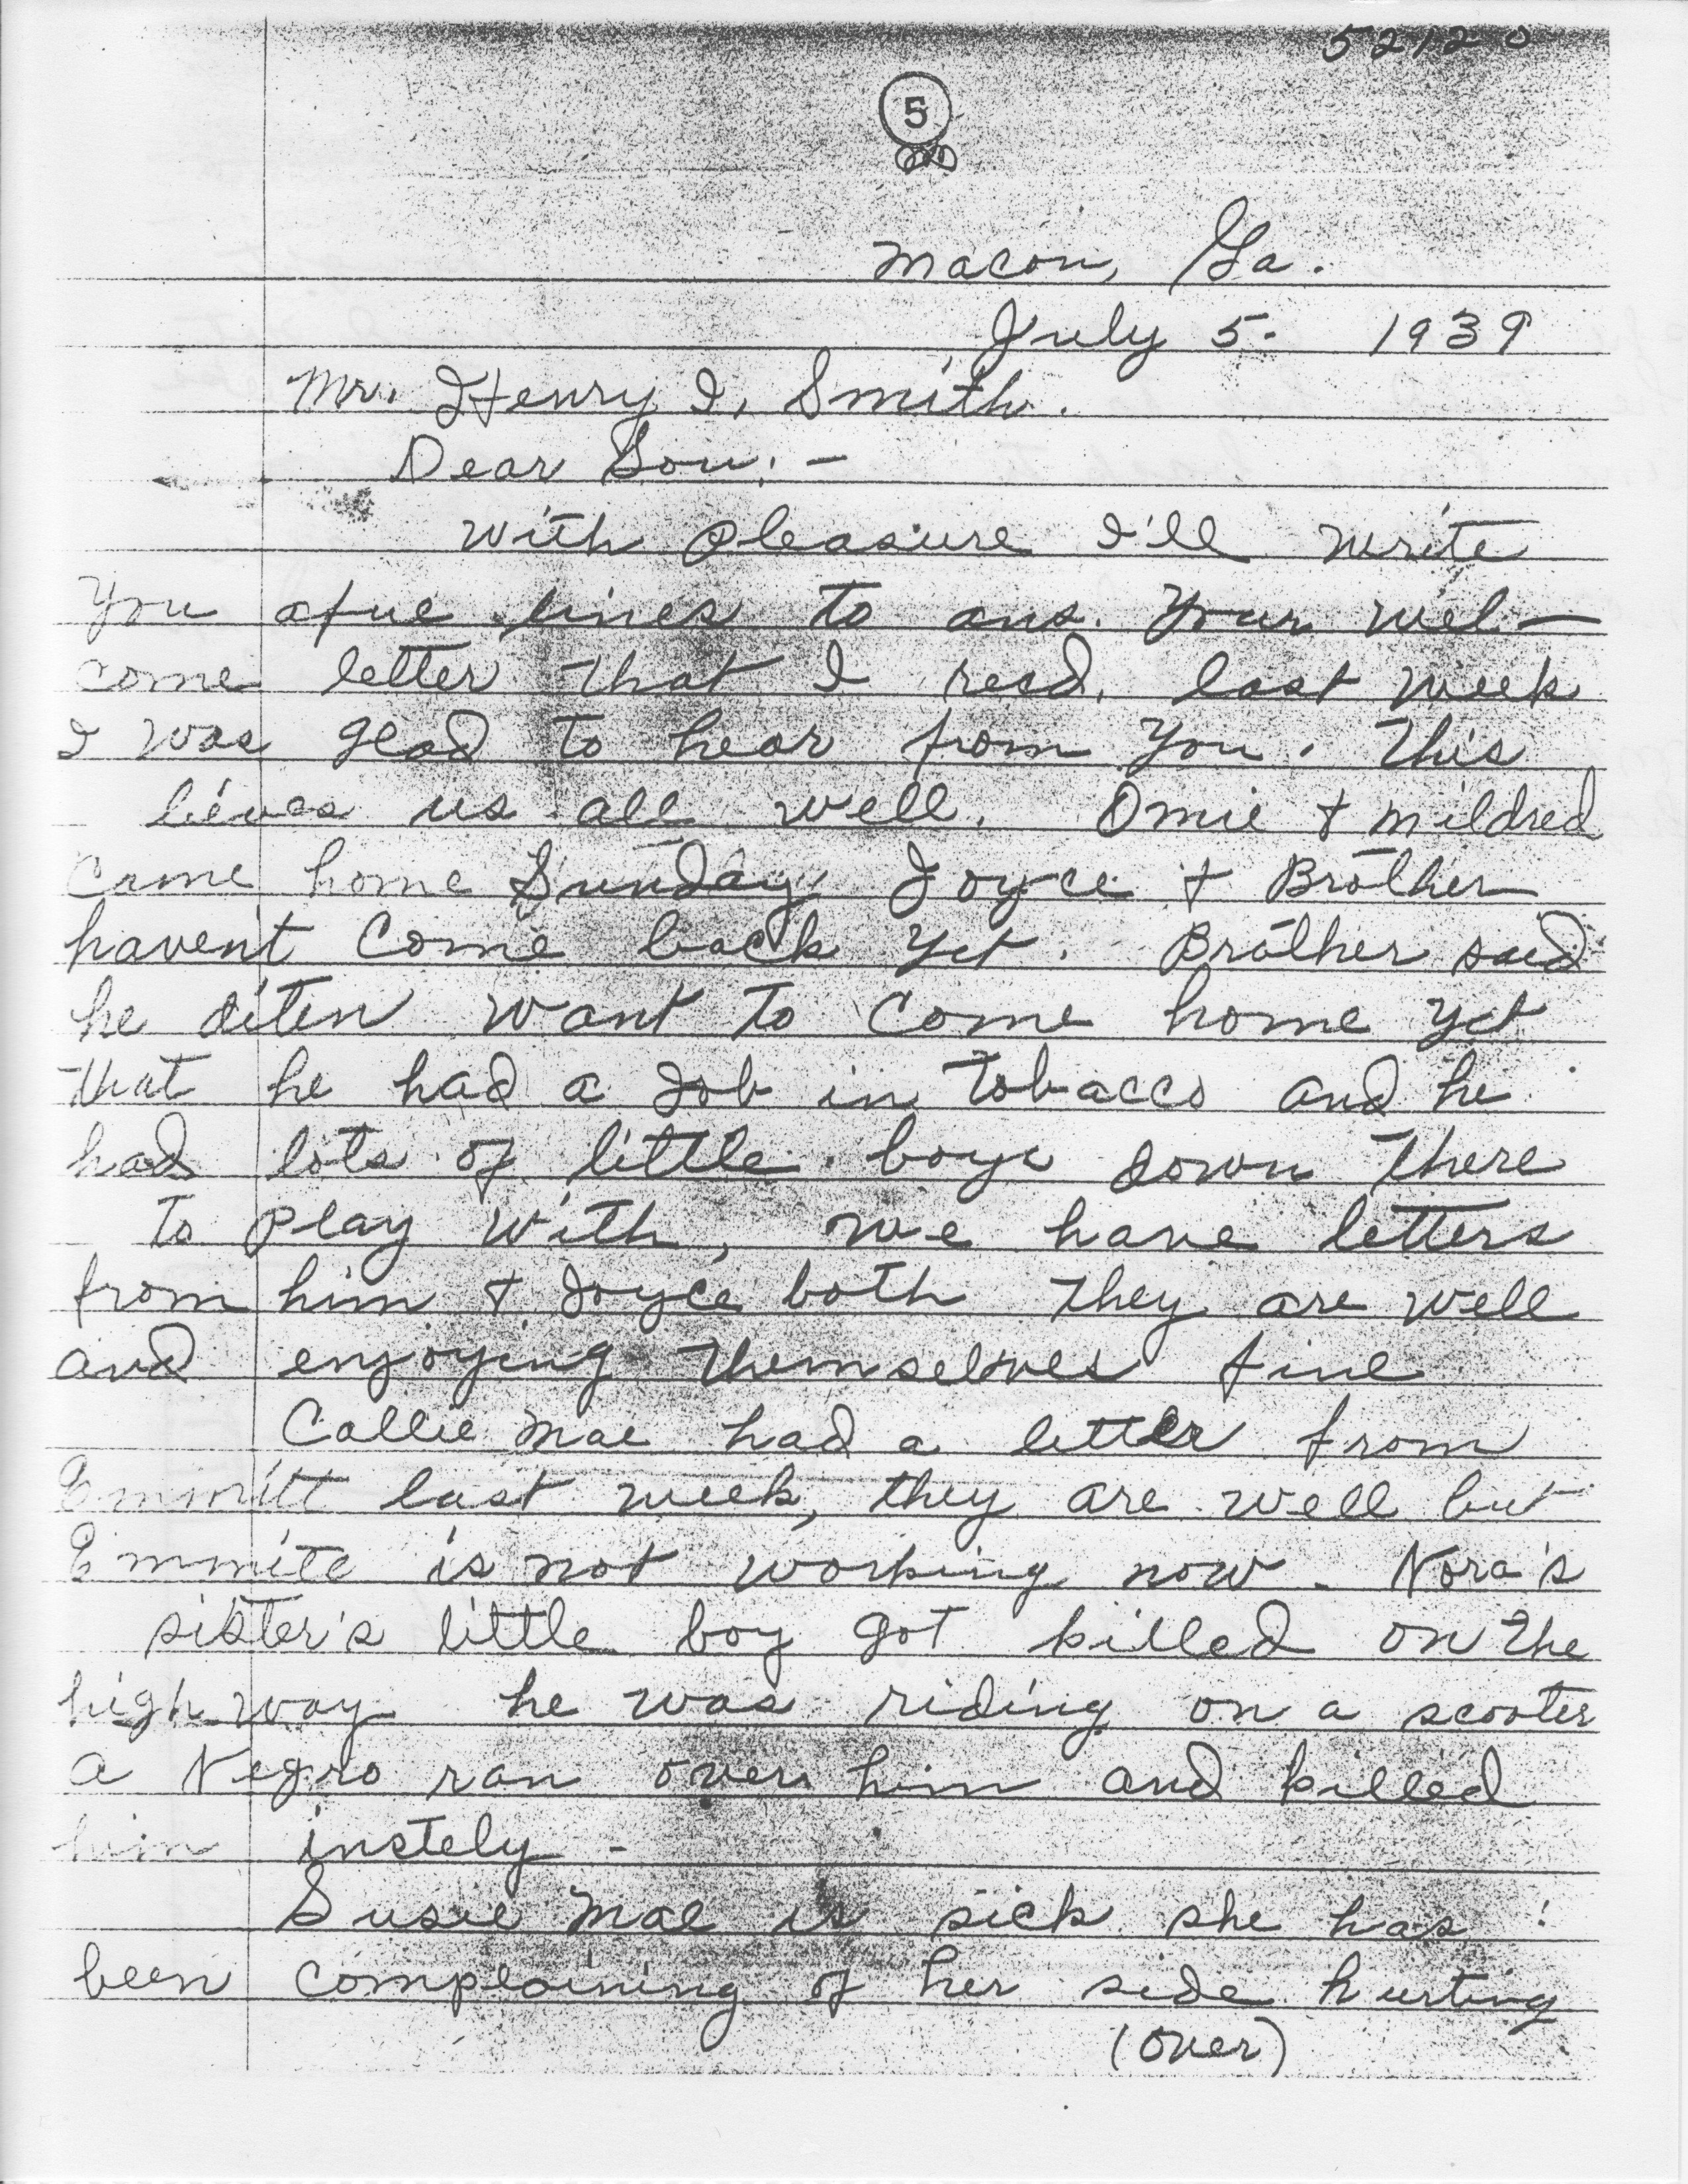 52120
5
Macon, Ga.
July 5. 1939
Mr. Henry I. Smith.
Dear Son: -
With pleasure I'll write
you afue lines to ans. your wel-
come letter that I recd. last week
I was glad to hear from you. This
lieves us all well. Omie + Mildred
came home Sunday, Joyce + Brother
haven't come back yet. Brother said
he diten want to come home yet
that he had a Job in tobacco and he
had lots of little boys down there
to play with, we have letters
from him + Joyce both they are well
and enjoying themselves fine
Callie Mae had a letter from
Emmitt last week, they are well but
Emmitt is not working now. Nora's
sister's little boy got killed on the
high way he was riding on a scooter
a Negro ran over him and killed
him instely -
Susie Mae is sick she has
been complaining of her side hurting
(over)